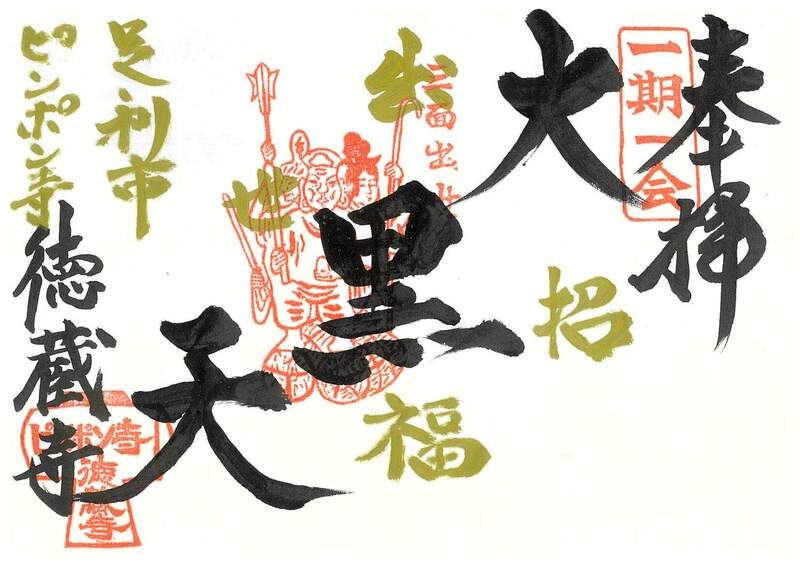 奉拝
一期一会
大黒天
招福
出世
三面出世
足利市
ピンポン寺
徳蔵寺
ピンポン寺
徳蔵寺